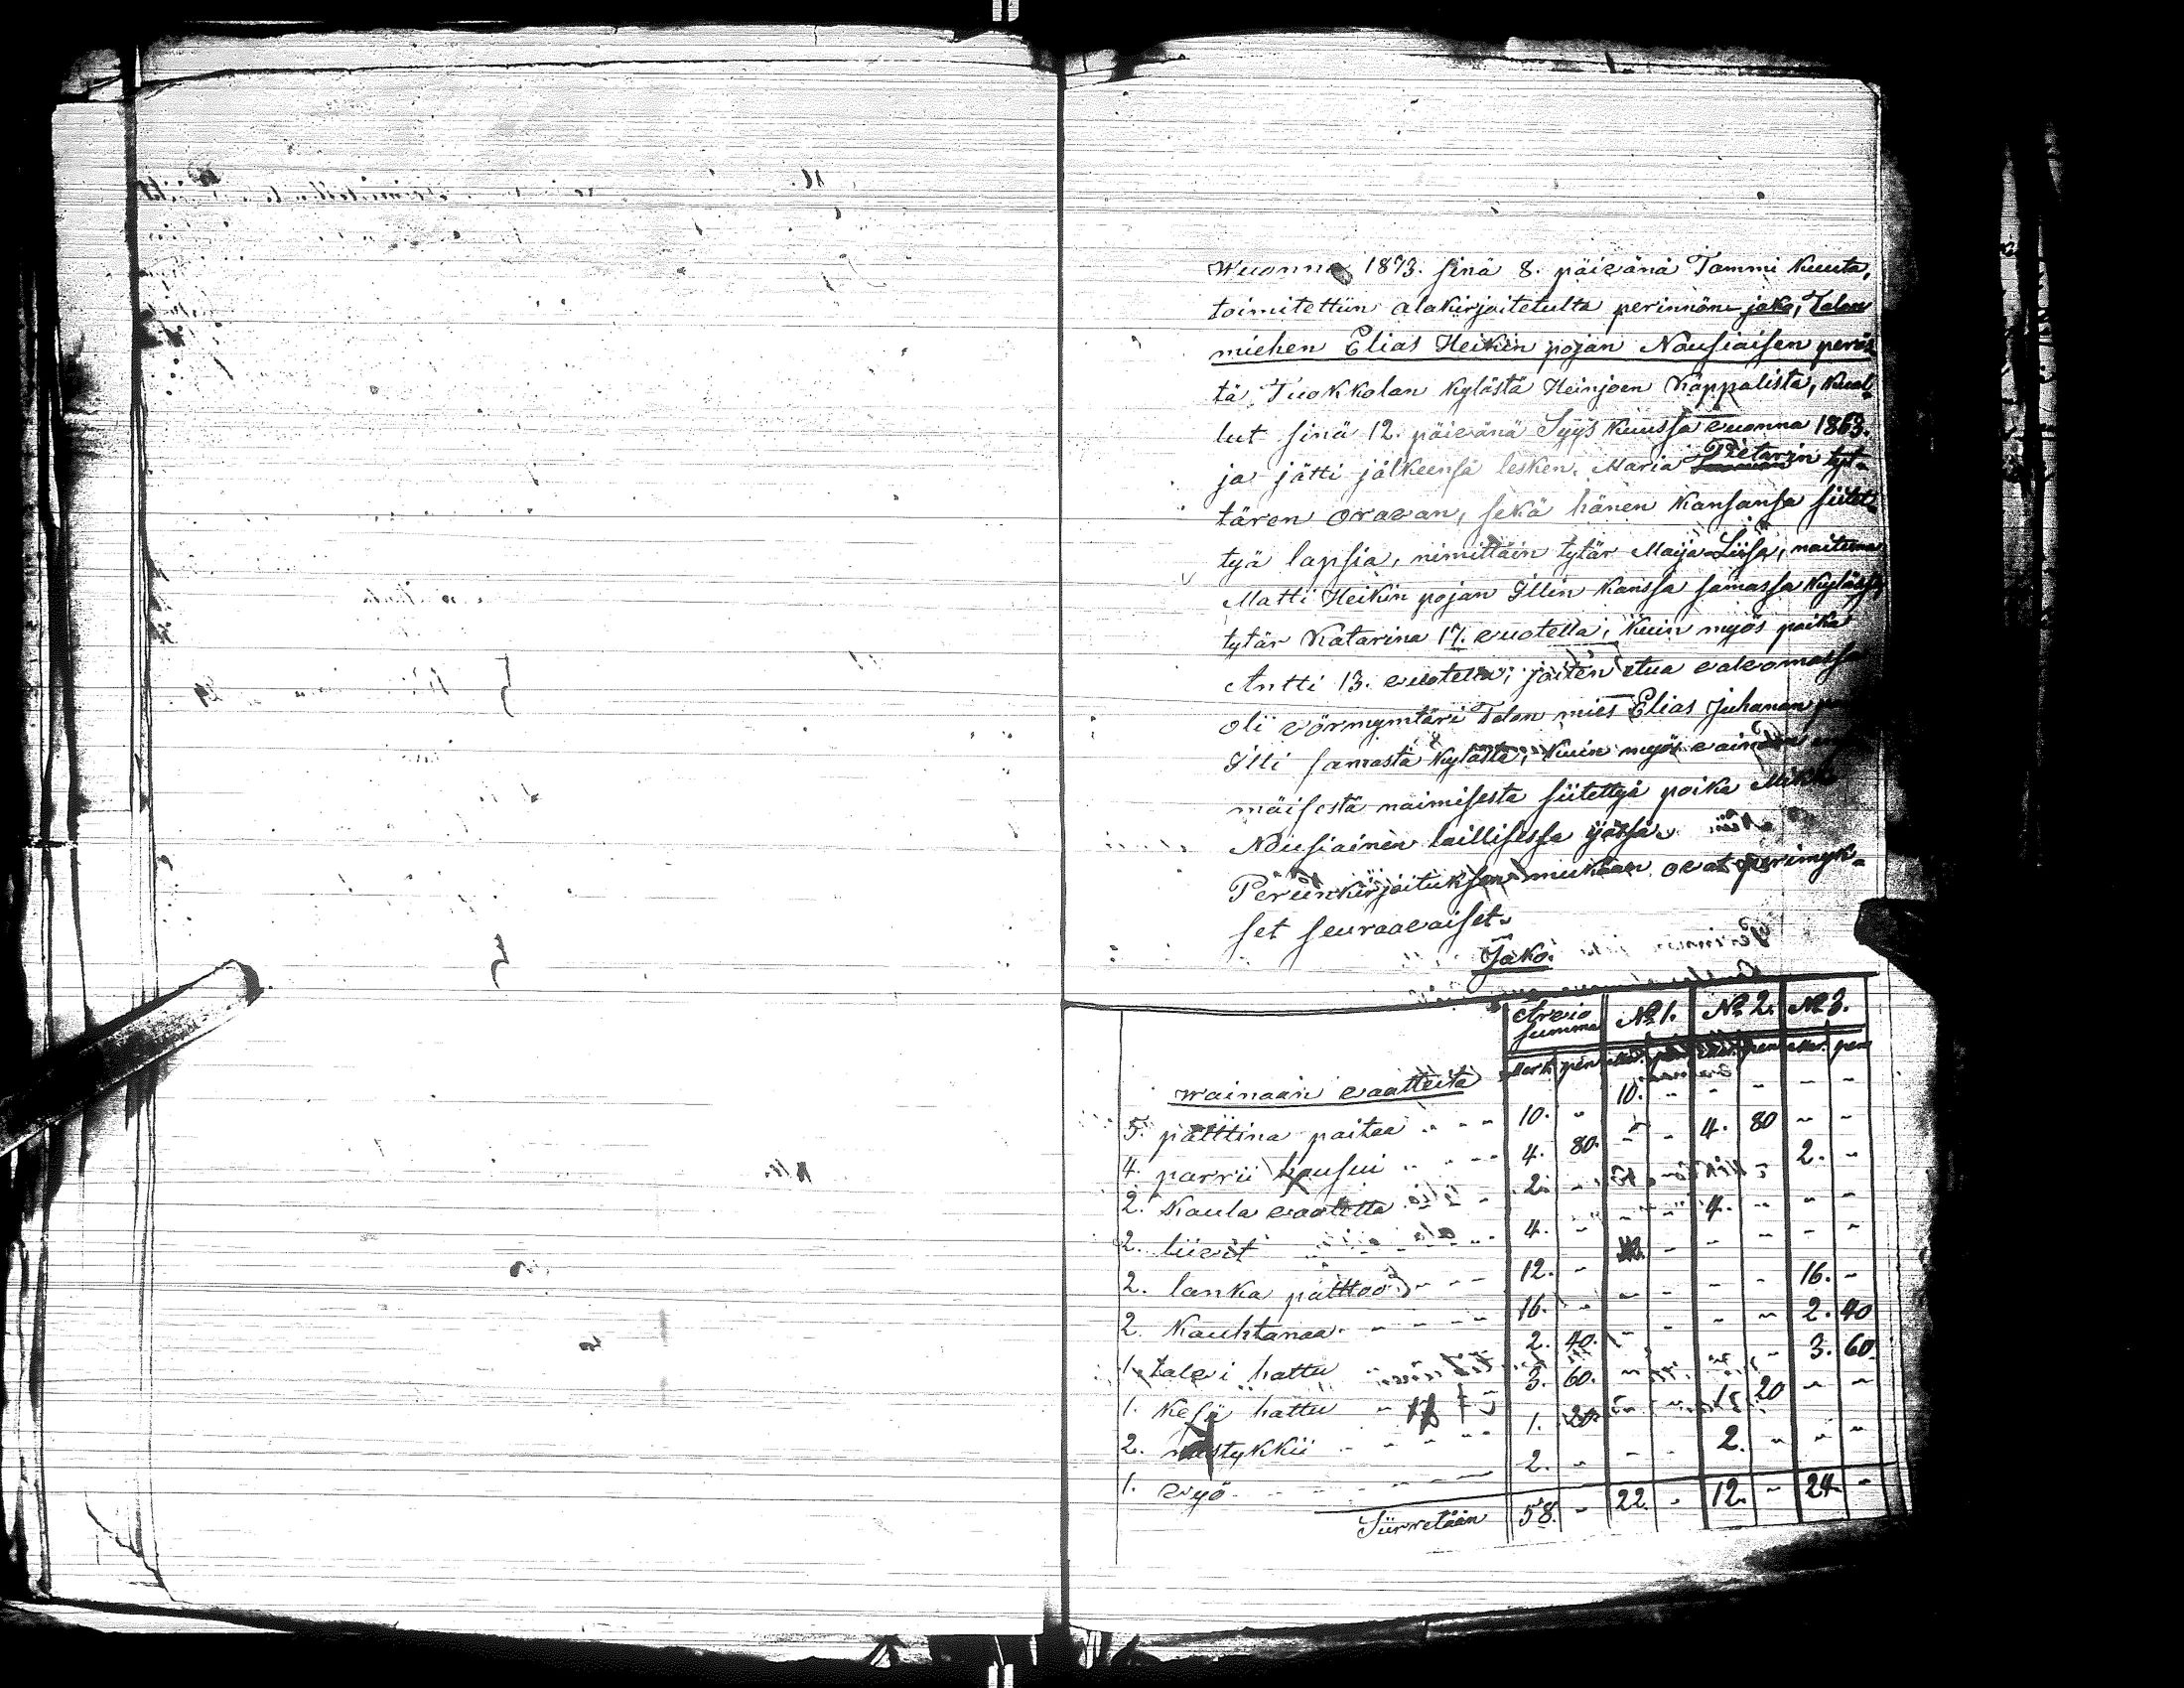 Wuonna 1873. sinä 8. päivänä Tammi kuuta,
toimitettiin alakirjoitetulta perinnön jako, Talon
miehen Elias Heikin pojan Nousiaisen peris
tä Tuokkolan kylästä Heinjoen kappalista, kuol
lut sinä 12. päivänä Syys kuussa vuonna 1863.
ja jätti jälkeensä lesken, Maria Pietarin tyt-
tären Oravan, sekä hänen kansansa siitet
tyä lapsia, nimittäin tytär Maija Liisa, naituna
Matti Heikin pojan Illin kanssa samassa kylässä,
tytär Katarina 17. vuotella; kuin myös poika
Antti 13. vuotella; joiten etua valvomassa
oli vörmyntäri Talon mies Elias Juhanan
Illi samasta kylästä; kuin myös vainaan
mäisestä naimisesta siitettyä poika Mikko
Nousiainen laillisessa ijässä.
Perunkirjoituksen mukaan ovat perimyk-
set seuraavaiset.
Jako.
Arvio summa № 1. № 2. № 3.
Mark. pen Mar. pen Mar. pen Mar. pen
Wainaan vaatteita
5. palttina paitaa - - - 10. - 10. - - - - -
4. parrii housui - - - 4. 80. - - 4. 80 - -
2. kaula vaatetta - 2. - - - - - 2. -
2. liivit - - - 4. - - - 4. - - -
2. lanka palttoo - - - 12. - 12. - - - - -
2. kauhtanaa - - - 16. - - - - - 16. -
1. talvi hattu 2. 40. - - - - 2. 40
1. kesä hattu - 3. 60. - - - - 3. 60.
2. mustykkii - - - 1. 20. - - 1. 20 - -
1. vyö - - - 2. - - - 2. - - -
Siirretään 58. - 22. - 12. - 24. -